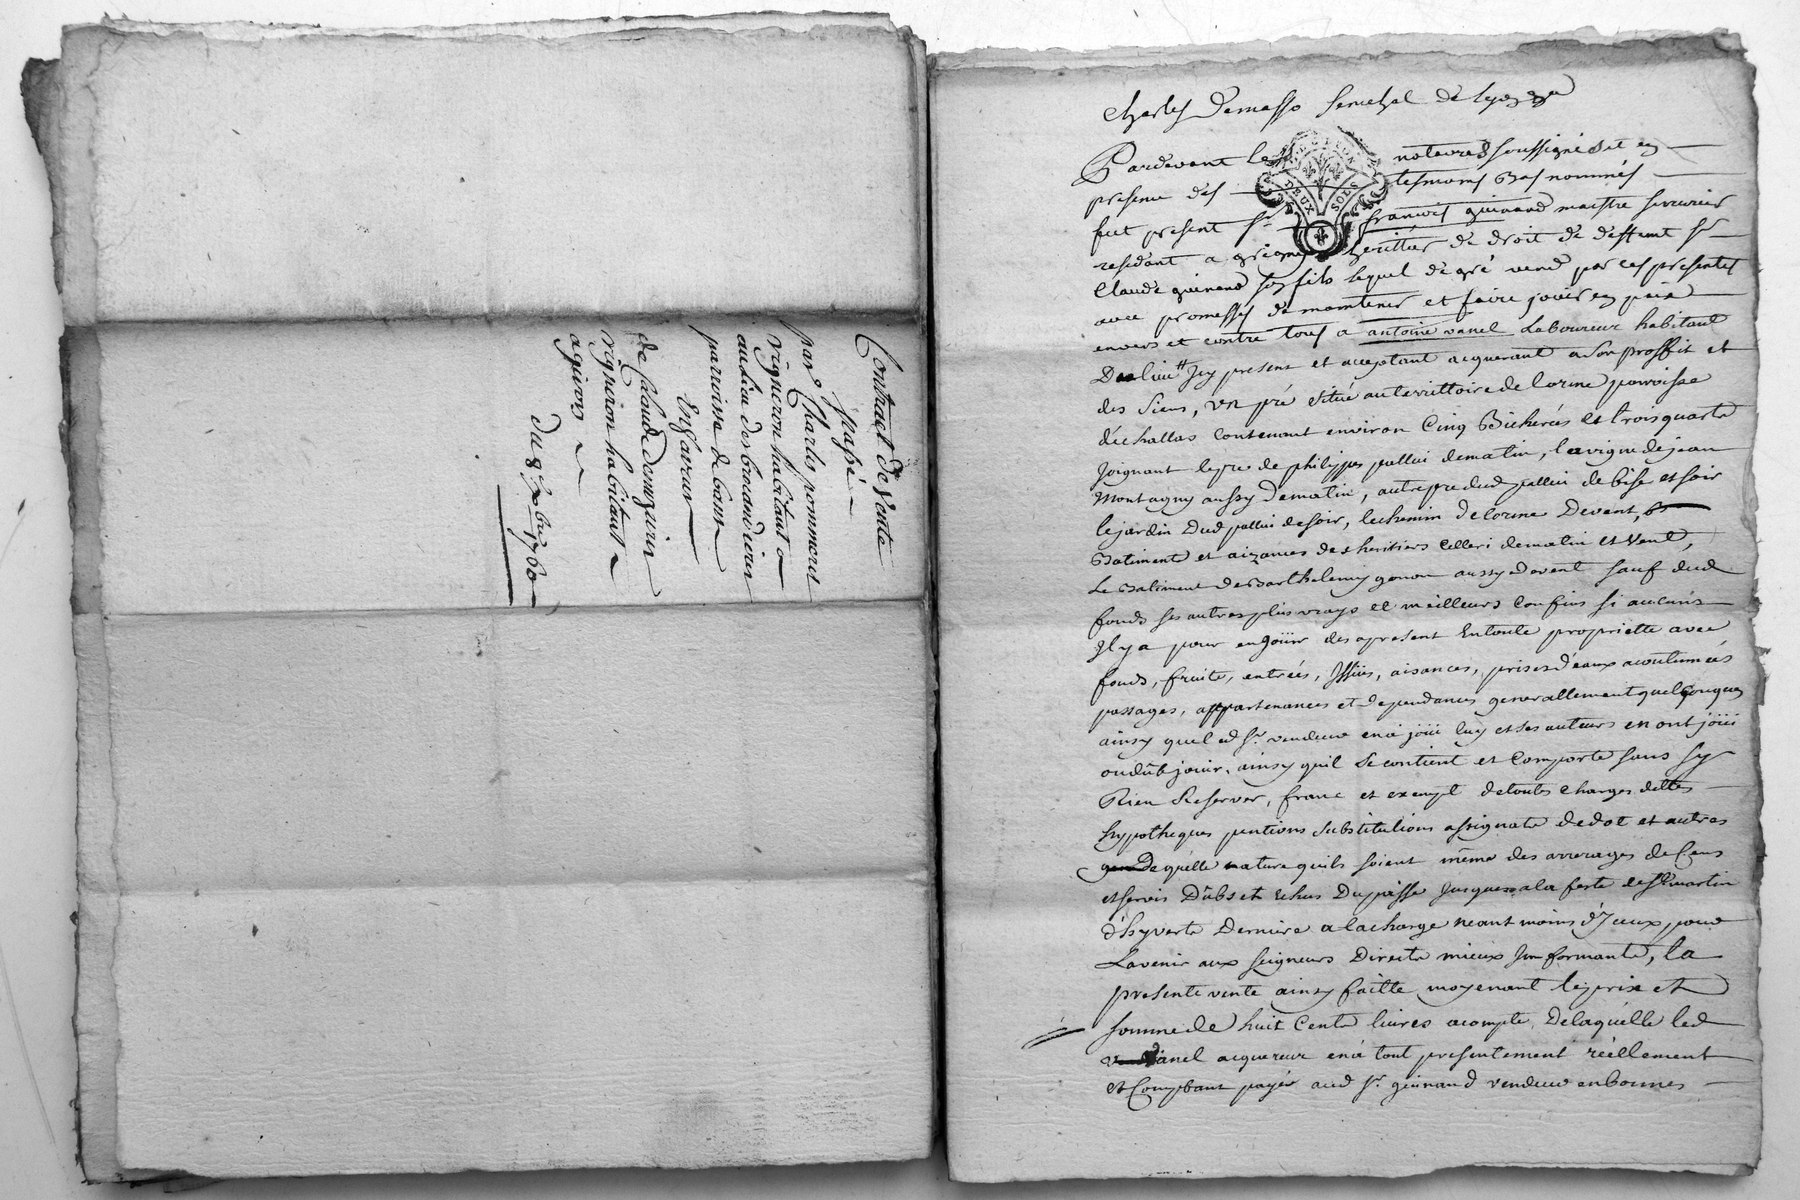 Contract de Vente
passé
par Charles pommeret
vigneron habitant
au lieu des brocandieres
parroisse de
En faveur
de Claude
vigneron habitant
a givors
du 8 7bre 1760
Charles Demasso Senechal de Lyon
Pardevant les notaires soussignés et en
presence des tesmoins Bas nommés
fut present Sr. francois guinand maistre serrurier
residant a grigny heritier de droit de deffunt Sr
Claude guinand son fils lequel de gré vend par ces presentes
avec promesses de maintenir et faire jouir en paix
envers et contre tous a antoine vanel Laboureur habitant
Dud lieu Icy present et acceptant acquerant a son proffit et
des siens, un pré situé au territtoire de Lorme parroisse
déchallas contenant environ Cinq Bicherées et trois quarts
Joignant le pré de philippes pallui de matin, la vigne de jean
Montagny aussy de matin, autre pre dud pallui de bise et soir
le jardin Dud pallui de soir, le chemin de Lorme Devent,
Batiments et aizances des heritiers Celleri de matin et vent,
Le Batiment de Barthelemy gonon aussy de vent sauf dud
fonds ses autres plus vrays et meilleurs confins si aucuns
Il y a pour en joüir des apresent En toute propriette avec
fonds, fruits, entrées, Issües, aisances, prises d'eaux acoutumées
passages, appartenances et dependances generallement quelconques
ainsy que led Sr. vendeur en a joüi luy et ses auteurs en ont joüi
ou dûb jouir, ainsy quil se contient et Comporte sans sy
Rien Reserver, franc et exempt de toutes charges dettes
hypotheques pentions substitutions assignats de dot et autres
De quelle nature quils soient même des arrerages de Cens
et servis Dûbs et Echus Du passé Jusques a la feste de St martin
d'hyverts Derniere a la charge neantmoins d'Iceux pour
Lavenir aux seigneurs Directs mieux Informants, la
presente vente ainsy faitte moyenant le prix et
somme de huit Cents livres acompte, De laquelle led
vanel acquereur en a tout presentement réellement
et Comptant payés aud Sr. guinand vendeur en bonnes